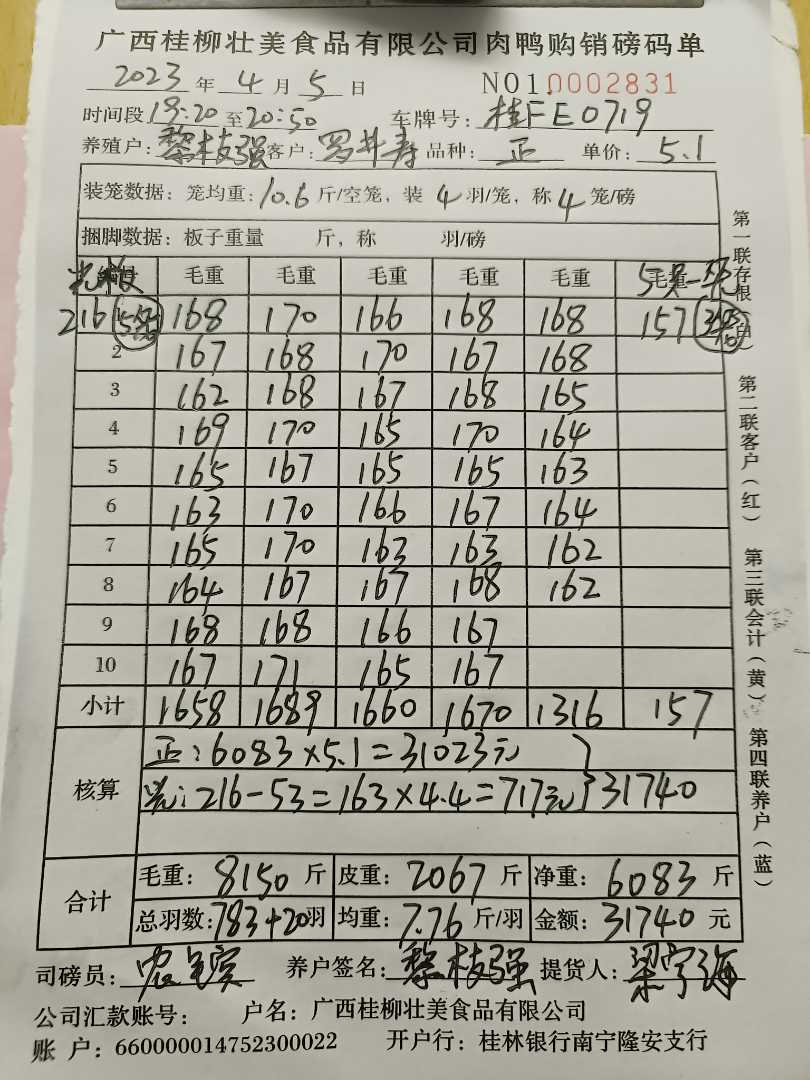 广西桂柳壮美食品有限公司肉鸭购销磅码单
2023 年 4 月 5 日 NO10002831
时间段 19:20 至 20:50 车牌号: 桂FE0719
养殖户: 黎枝强 客户: 罗井寿 品种: 正 单价: 5.1
装笼数据: 笼均重: 10.6 斤/空笼, 装 4 羽/笼, 称 4 笼/磅
捆脚数据: 板子重量 斤, 称 羽/磅
毛重 毛重 毛重 毛重 毛重 毛重 5只一笼
216 168 170 166 168 168 157
2 167 168 170 167 168
3 162 168 167 168 165
4 169 170 165 170 164
5 165 167 165 165 163
6 163 170 166 167 164
7 165 170 163 163 162
8 164 167 167 168 162
9 168 168 166 167
10 167 171 165 167
小计 1658 1689 1660 1670 1316 157
核算
正: 6083×5.1=31023元
光: 216-53=163×4.4=717元 } 31740
合计
毛重: 8150 斤 皮重: 2067 斤 净重: 6083 斤
总羽数: 783+20羽 均重: 7.76 斤/羽 金额: 31740 元
司磅员: 养户签名: 黎枝强 提货人: 梁宁海
公司汇款账号: 户名: 广西桂柳壮美食品有限公司
账 户: 660000014752300022 开户行: 桂林银行南宁隆安支行
第一联存根(白)
第二联客户(红)
第三联会计(黄)
第四联养户(蓝)